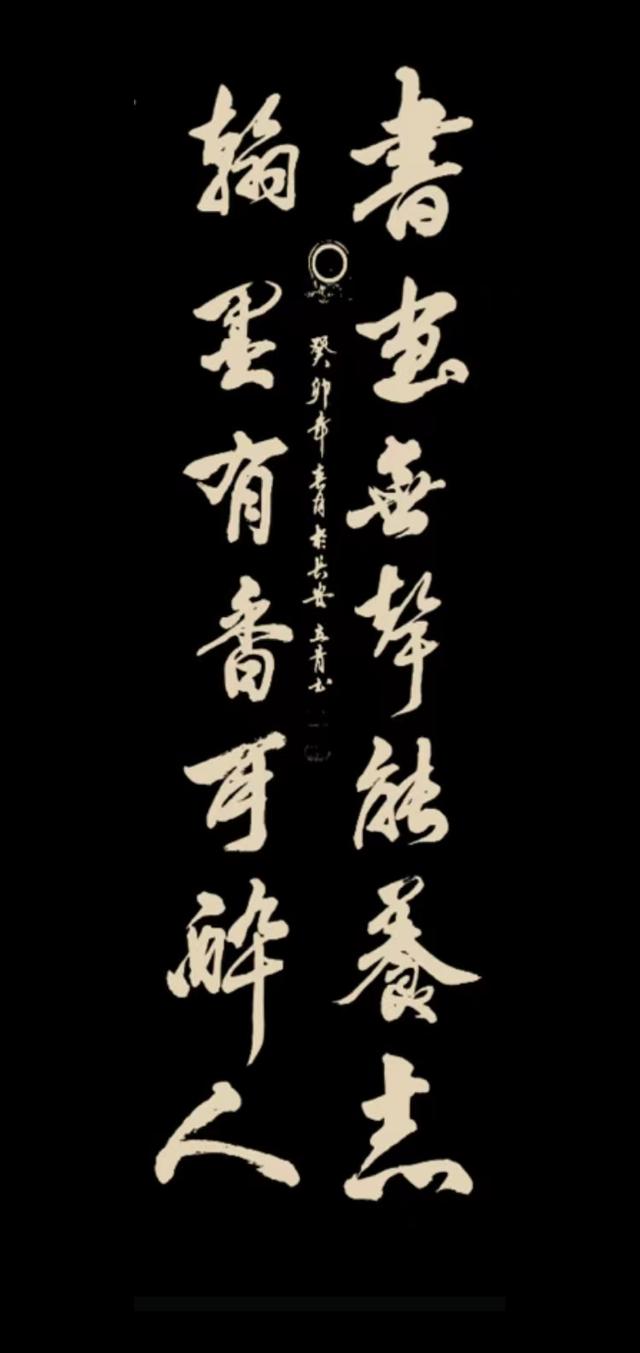 書画無聲能養志
翰墨有香可醉人
癸卯年春月於長安立青书